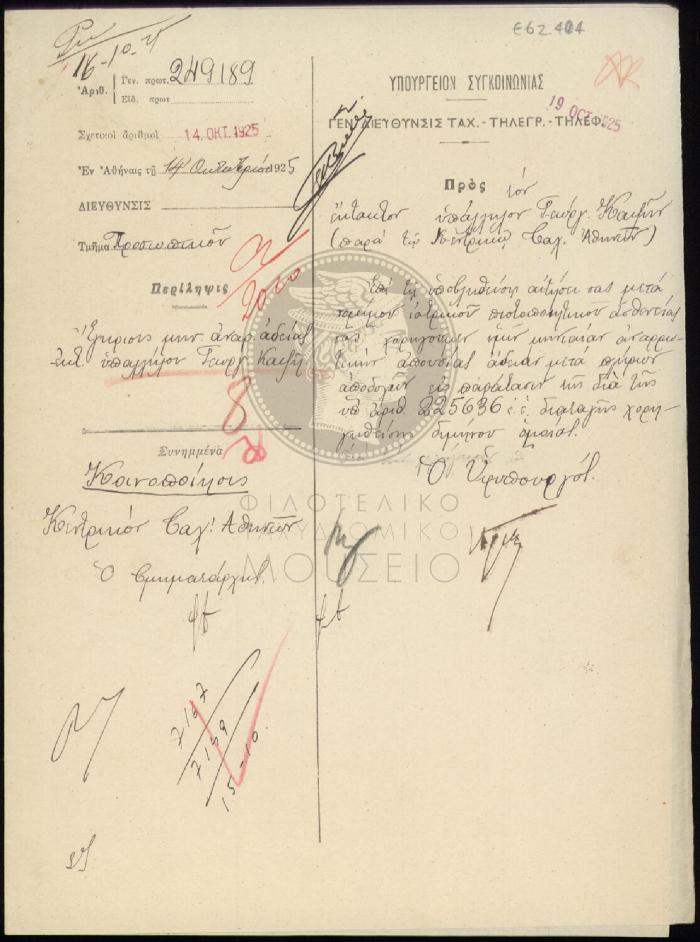 Ε62.404
16-10-25
Ἀριθ. Γεν. πρωτ. 249189
Εἰδ. πρωτ
Σχετικοὶ ἀριθμοὶ 14.ΟΚΤ.1925
Ἐν Ἀθήναις τῇ 14 Ὀκτωβρίου 1925
ΔΙΕΥΘΥΝΣΙΣ
Τμῆμα Προσωπικοῦ
Περίληψις
Ἔγκρισις μην. ἀναρ. ἀδείας
ἐκτ. ὑπαλλήλου Γεωργ.
Συνημμένα
Κοινοποίησις
Κεντρικὸν Ταχ. Ἀθηνῶν
Ὁ Τμηματάρχης
7167
7159
15-10
ΥΠΟΥΡΓΕΙΟΝ ΣΥΓΚΟΙΝΩΝΙΑΣ
19 ΟΚΤ 1925
ΓΕΝ. ΔΙΕΥΘΥΝΣΙΣ ΤΑΧ. - ΤΗΛΕΓΡ. - ΤΗΛΕΦ.
Πρὸς τὸν
ἔκτακτον ὑπάλληλον Γεώργ.
(παρὰ τῷ Κεντρικῷ Ταχ. Ἀθηνῶν)
Ἐπὶ τῇ ὑποβληθείσῃ αἰτήσει σας μετὰ
ἰατρικοῦ πιστοποιητικοῦ ἀσθενείας
σας χορηγοῦμεν ὑμῖν μηνιαίαν ἀναρρω-
τικὴν ἀπουσίας ἄδειαν μετὰ πλήρων
ἀποδοχῶν εἰς παράτασιν τῆς διὰ τῆς
ὑπ' ἀριθ. 225636 ἐ.ἔ. διαταγῆς χορη-
γηθείσης διμήνου ὁμοίας.
Ὁ Ὑφυπουργός
ΦΙΛΟΤΕΛΙΚΟ
ΤΑΧΥΔΡΟΜΙΚΟ
ΜΟΥΣΕΙΟ